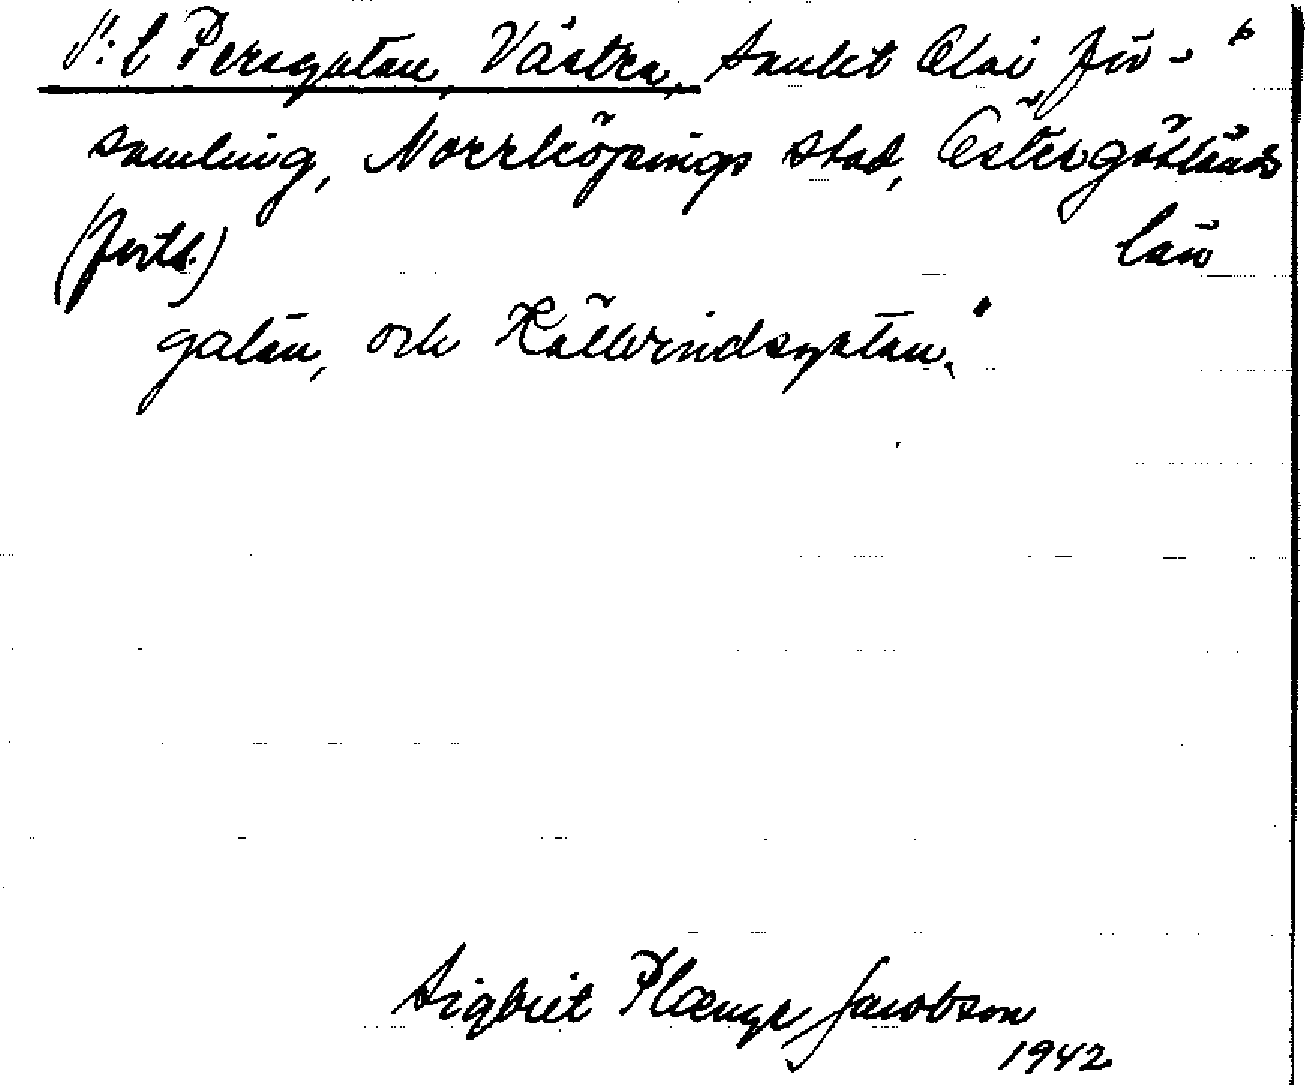 S:t Persgatan, Västra, Sankt Olai för-
samling, Norrköpings stad, Östergötlands
(forts.) län
gatan, och Källvindsgatan."
Sigbrit Plænge Jacobson
1942